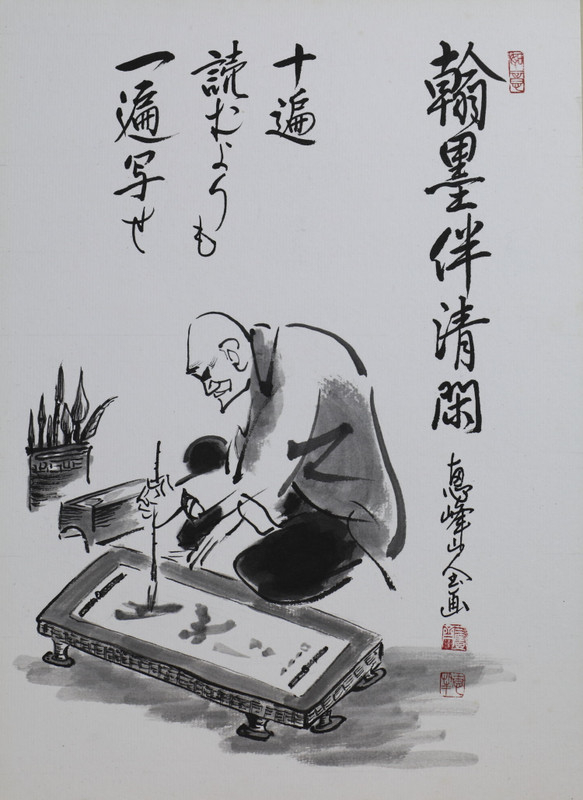 如意
翰墨伴清閑
恵峰山人画
十遍
読むよりも
一遍写せ